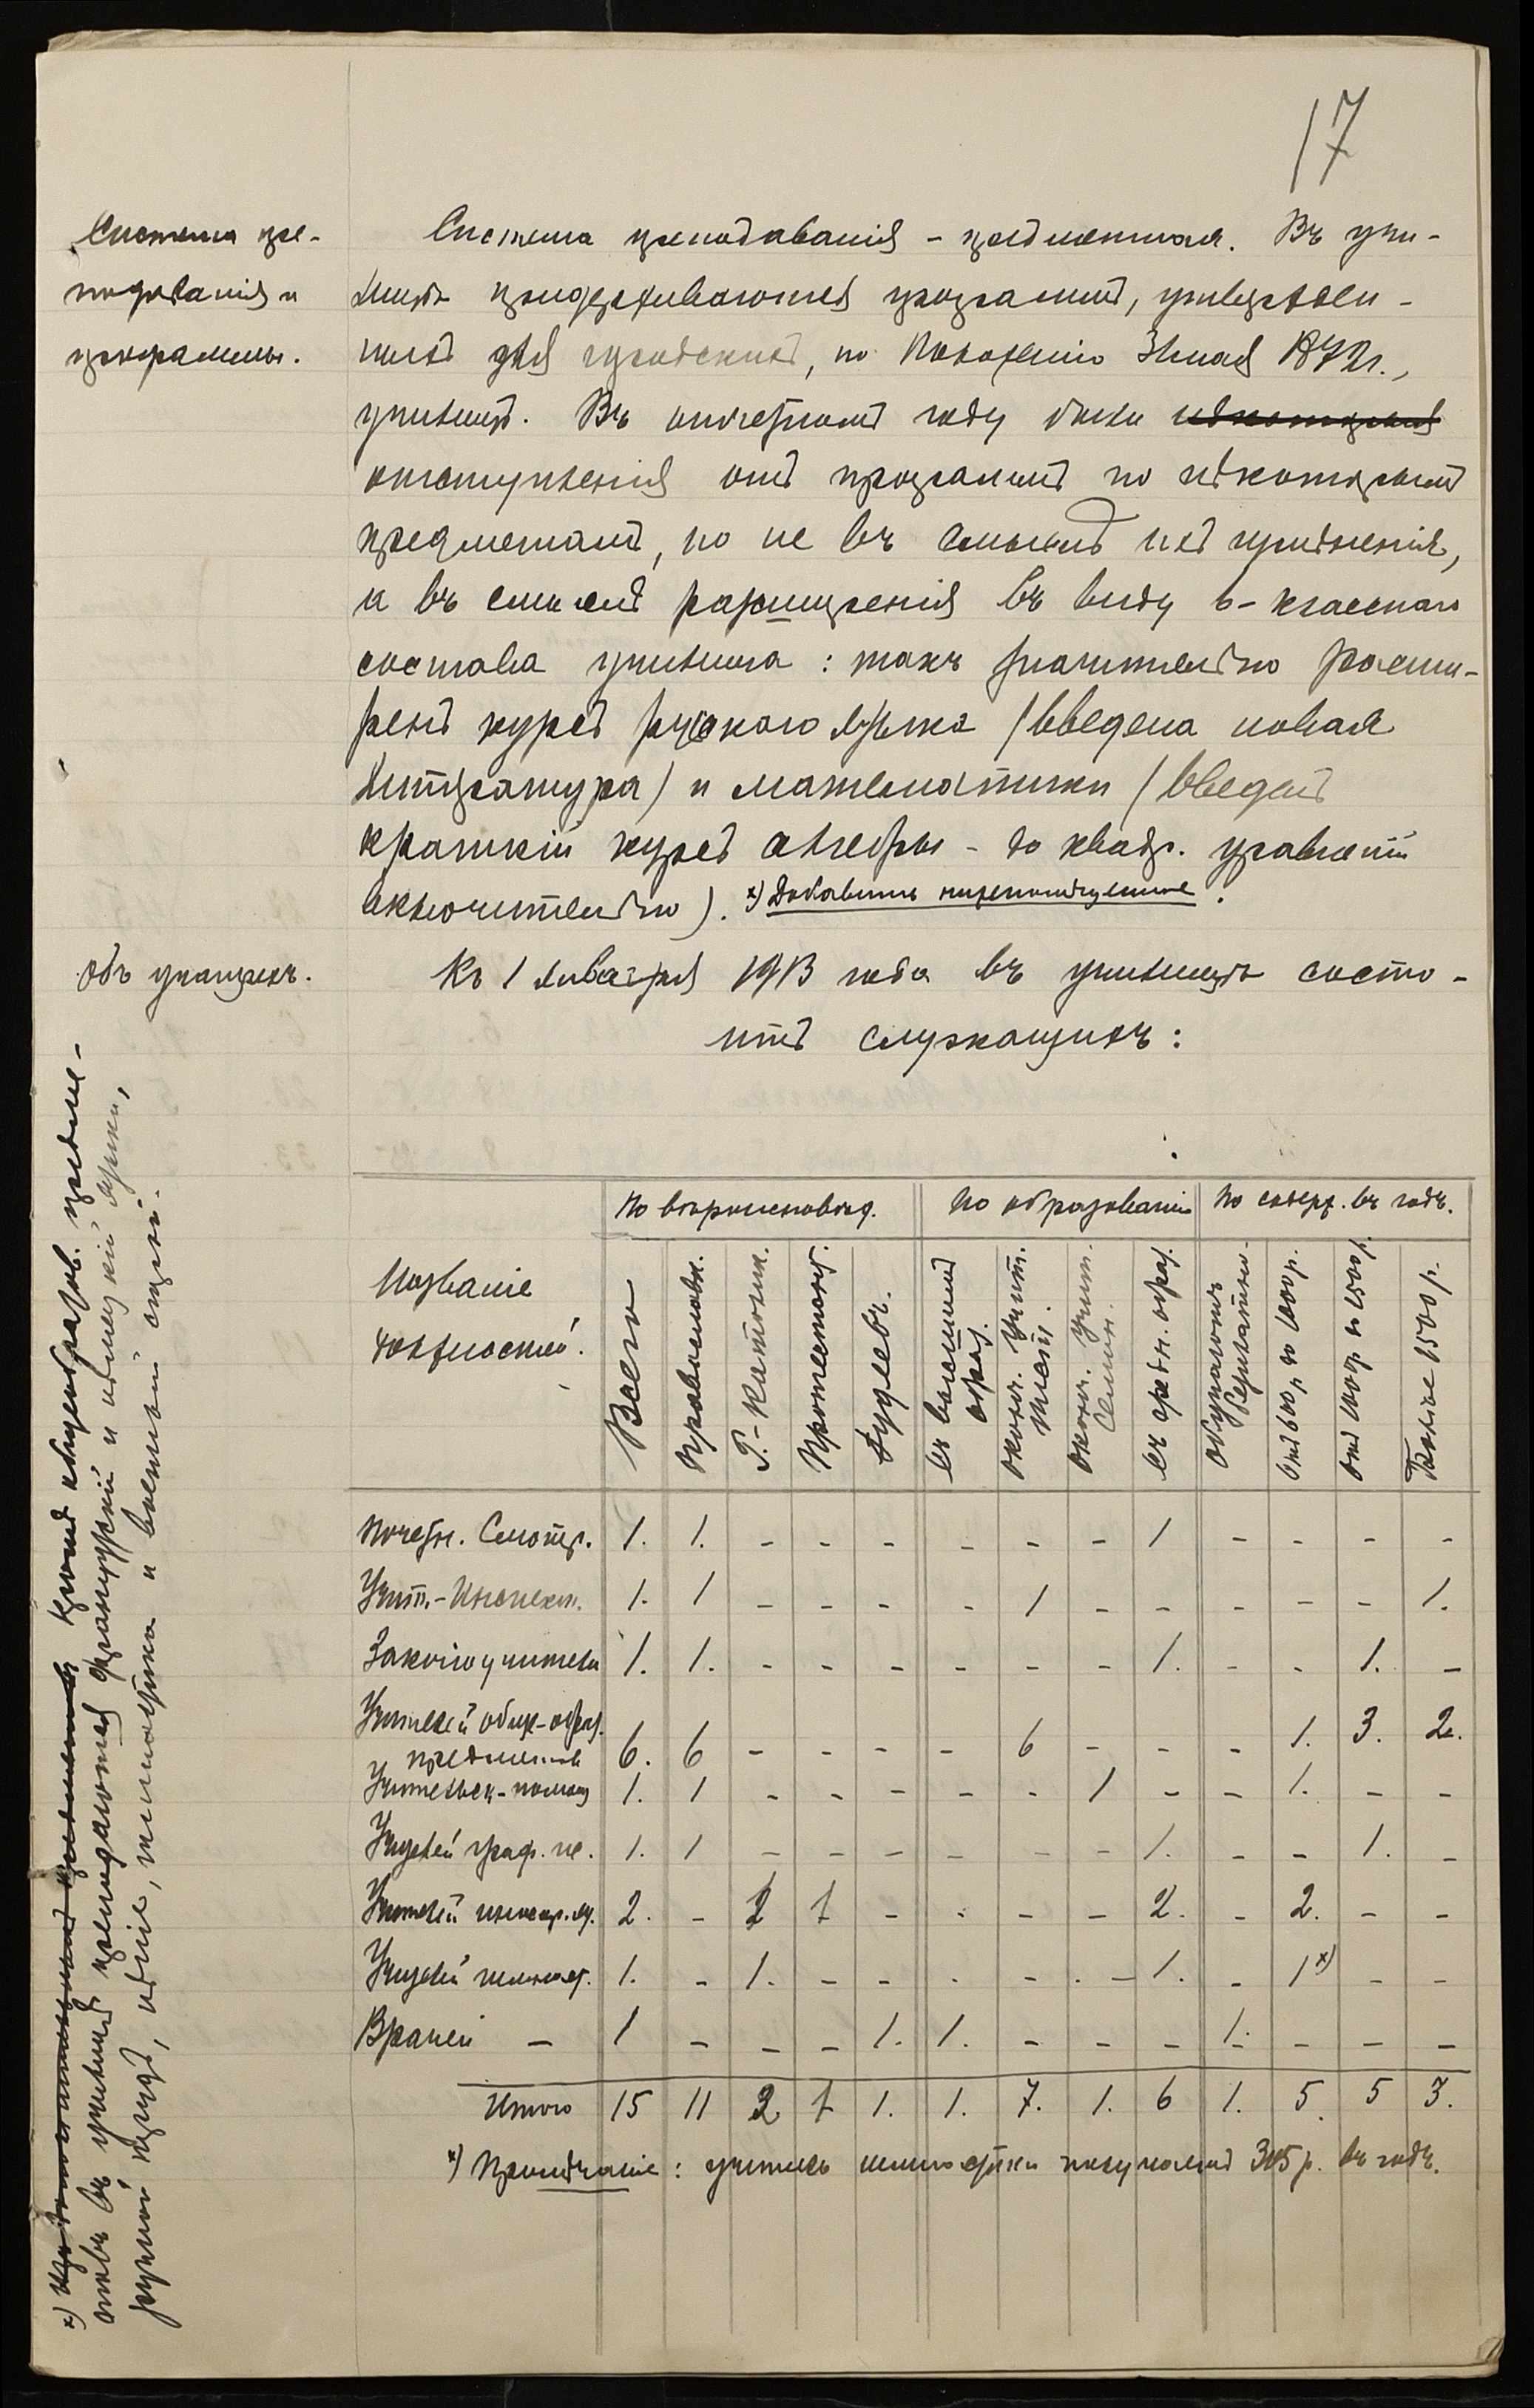 17
Система пре-
подаванія и
программы.
Система преподаванія – предметная. Въ учи-
лищѣ придерживаются программъ, учрежден-
ныхъ для городскихъ, по Положенію 31 мая 1872 г.,
училищъ. Въ отчетномъ году были нѣкоторыя
отступленія отъ программъ по нѣкоторымъ
предметамъ, но не въ смыслѣ ихъ
а въ смыслѣ расширенія въ виду 6-класснаго
состава училища: такъ значительно расши-
ренъ курсъ русскаго языка (введена новая
литература) и математики (введенъ
краткій курсъ алгебры – до квадр. уравненій
включительно). х) Добавить нижепомѣщенное.
Объ учащихъ.
Къ 1 января 1913 года въ училищѣ состо-
итъ служащихъ:
Названіе должностей. | По вѣроисповѣд. | По образованію | По содерж. въ годъ.
Всего | Православн. | Р.-Католик. | Протестант. | Іудеевъ. | Съ высшимъ образ. | Оконч. Учит. Инст. | Оконч. Учит. Семин. | Съ средн. образ. | Отъ 600 р. до 1000 р. | Отъ 1000 р. до 1500 р. | Больше 1500 р.
Почетн. Смотр. 1. 1. - - - - - - 1 - - - -
Учит.-Инспект. 1. 1 - - - - 1 - - - - - 1.
Законоучителей 1. 1. - - - - - - 1. - - 1. -
Учителей общ-образ.
предметовъ 6. 6 - - - - 6 - - - 1. 3. 2.
Учительск-помощ 1. 1 - - - - - 1 - - 1. - -
Учителей граф. ис. 1. 1 - - - - - - 1. - - 1. -
Учителей иностр. яз. 2. - 2 1 - - - - 2. - 2. - -
Учителей гимнаст. 1. - 1. - - - - - 1. - 1 х) - -
Врачей – 1 - - - 1. 1. - - - 1. - - -
Итого 15 11 2 1 1. 1. 7. 1. 6 1. 5. 5 3.
х) Примѣчаніе: учитель гимнастики получаетъ 315 р. въ годъ.
х) Кромѣ общеобразов. предме-
товъ въ училищѣ преподаются французскій и нѣмецкій языки,
ручной трудъ, пѣніе, гимнастика и военный строй.